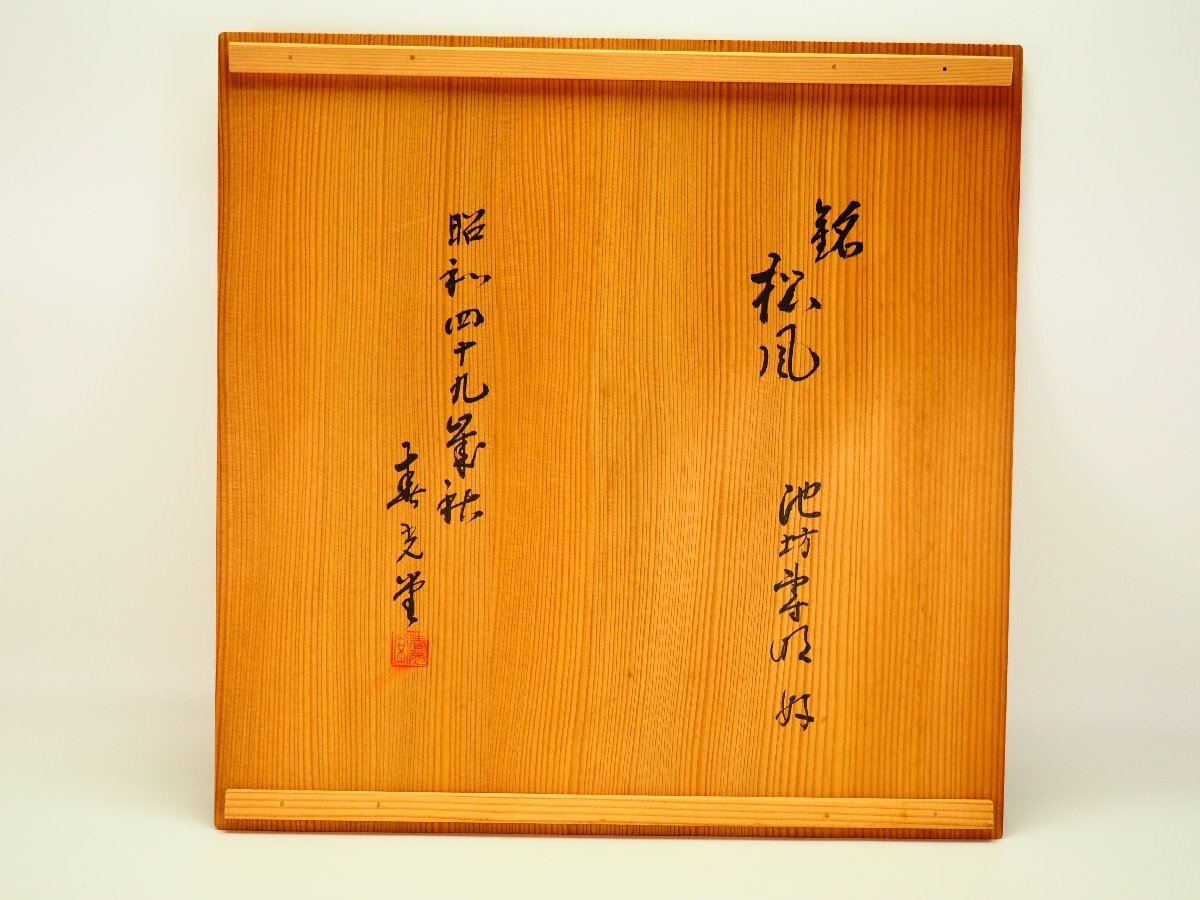 銘
松風
池坊専明 好
昭和四十九歳秋
春光堂